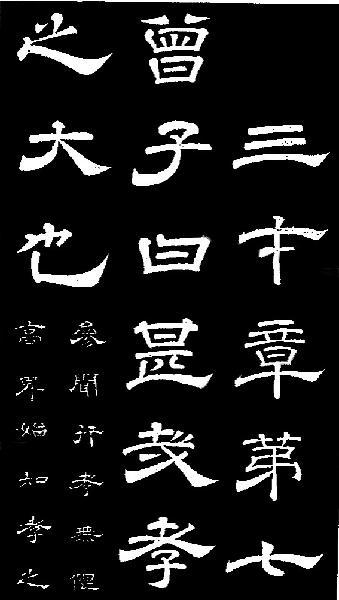 三才章第七
曾子曰甚哉孝
之大也
參聞行孝無限
高卑始知孝之